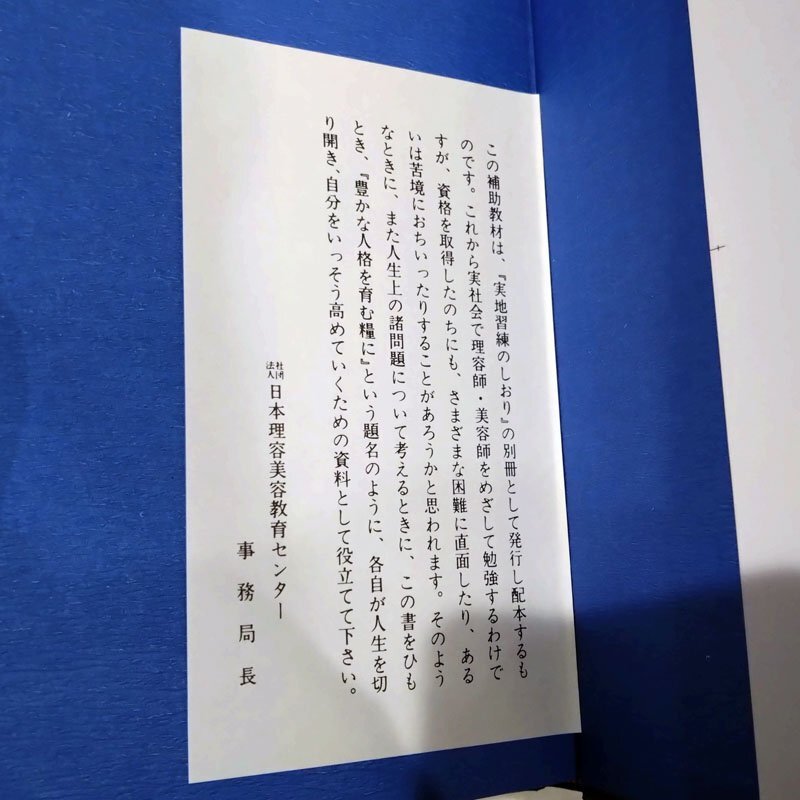 この補助教材は、『実地習練のしおり』の別冊として発行し配本するも
のです。これから実社会で理容師・美容師をめざして勉強するわけで
すが、資格を取得したのちにも、さまざまな困難に直面したり、ある
いは苦境におちいったりすることがあろうかと思われます。そのよう
なときに、また人生上の諸問題について考えるときに、この書をひも
とき、『豊かな人格を育む糧に』という題名のように、各自が人生を切
り開き、自分をいっそう高めていくための資料として役立てて下さい。
社団法人 日本理容美容教育センター
事務局長